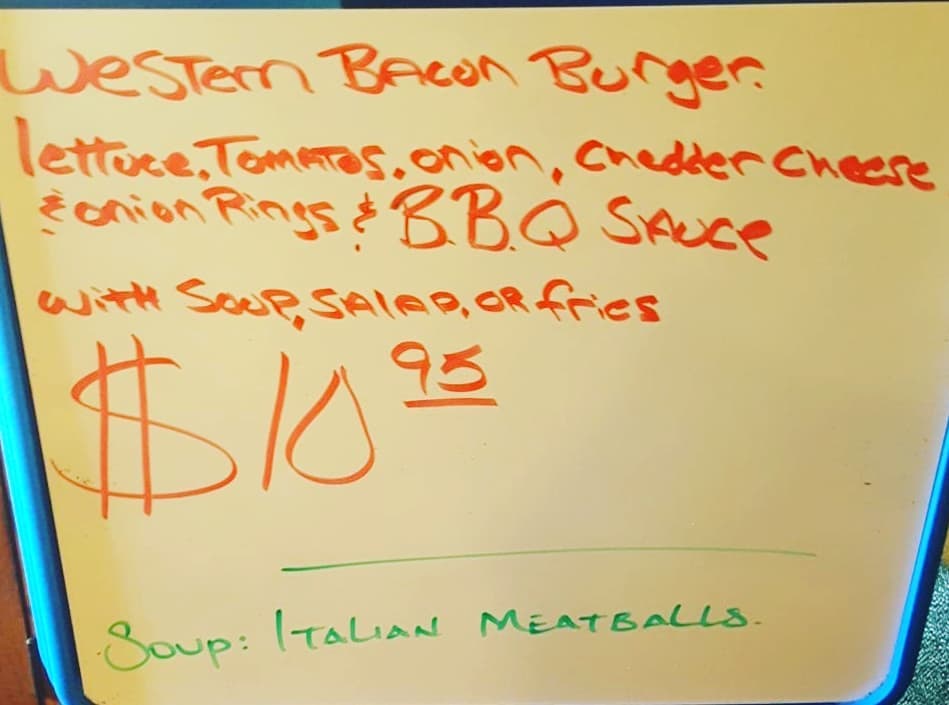 Western Bacon Burger.
lettuce, Tomatos, onion, Chedder Cheese
& onion Rings & B.B.Q Sauce
with Soup, SALAD, OR fries
$10 95
Soup: ITALIAN MEATBALLS.